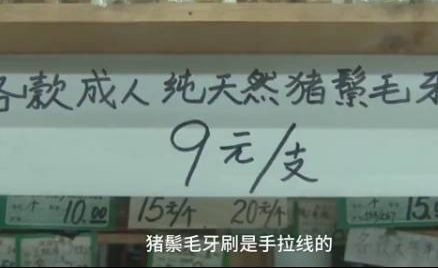 各款成人纯天然猪鬃毛牙
9元/支
10.00 15元/个 20元/个 15.
猪鬃毛牙刷是手拉线的